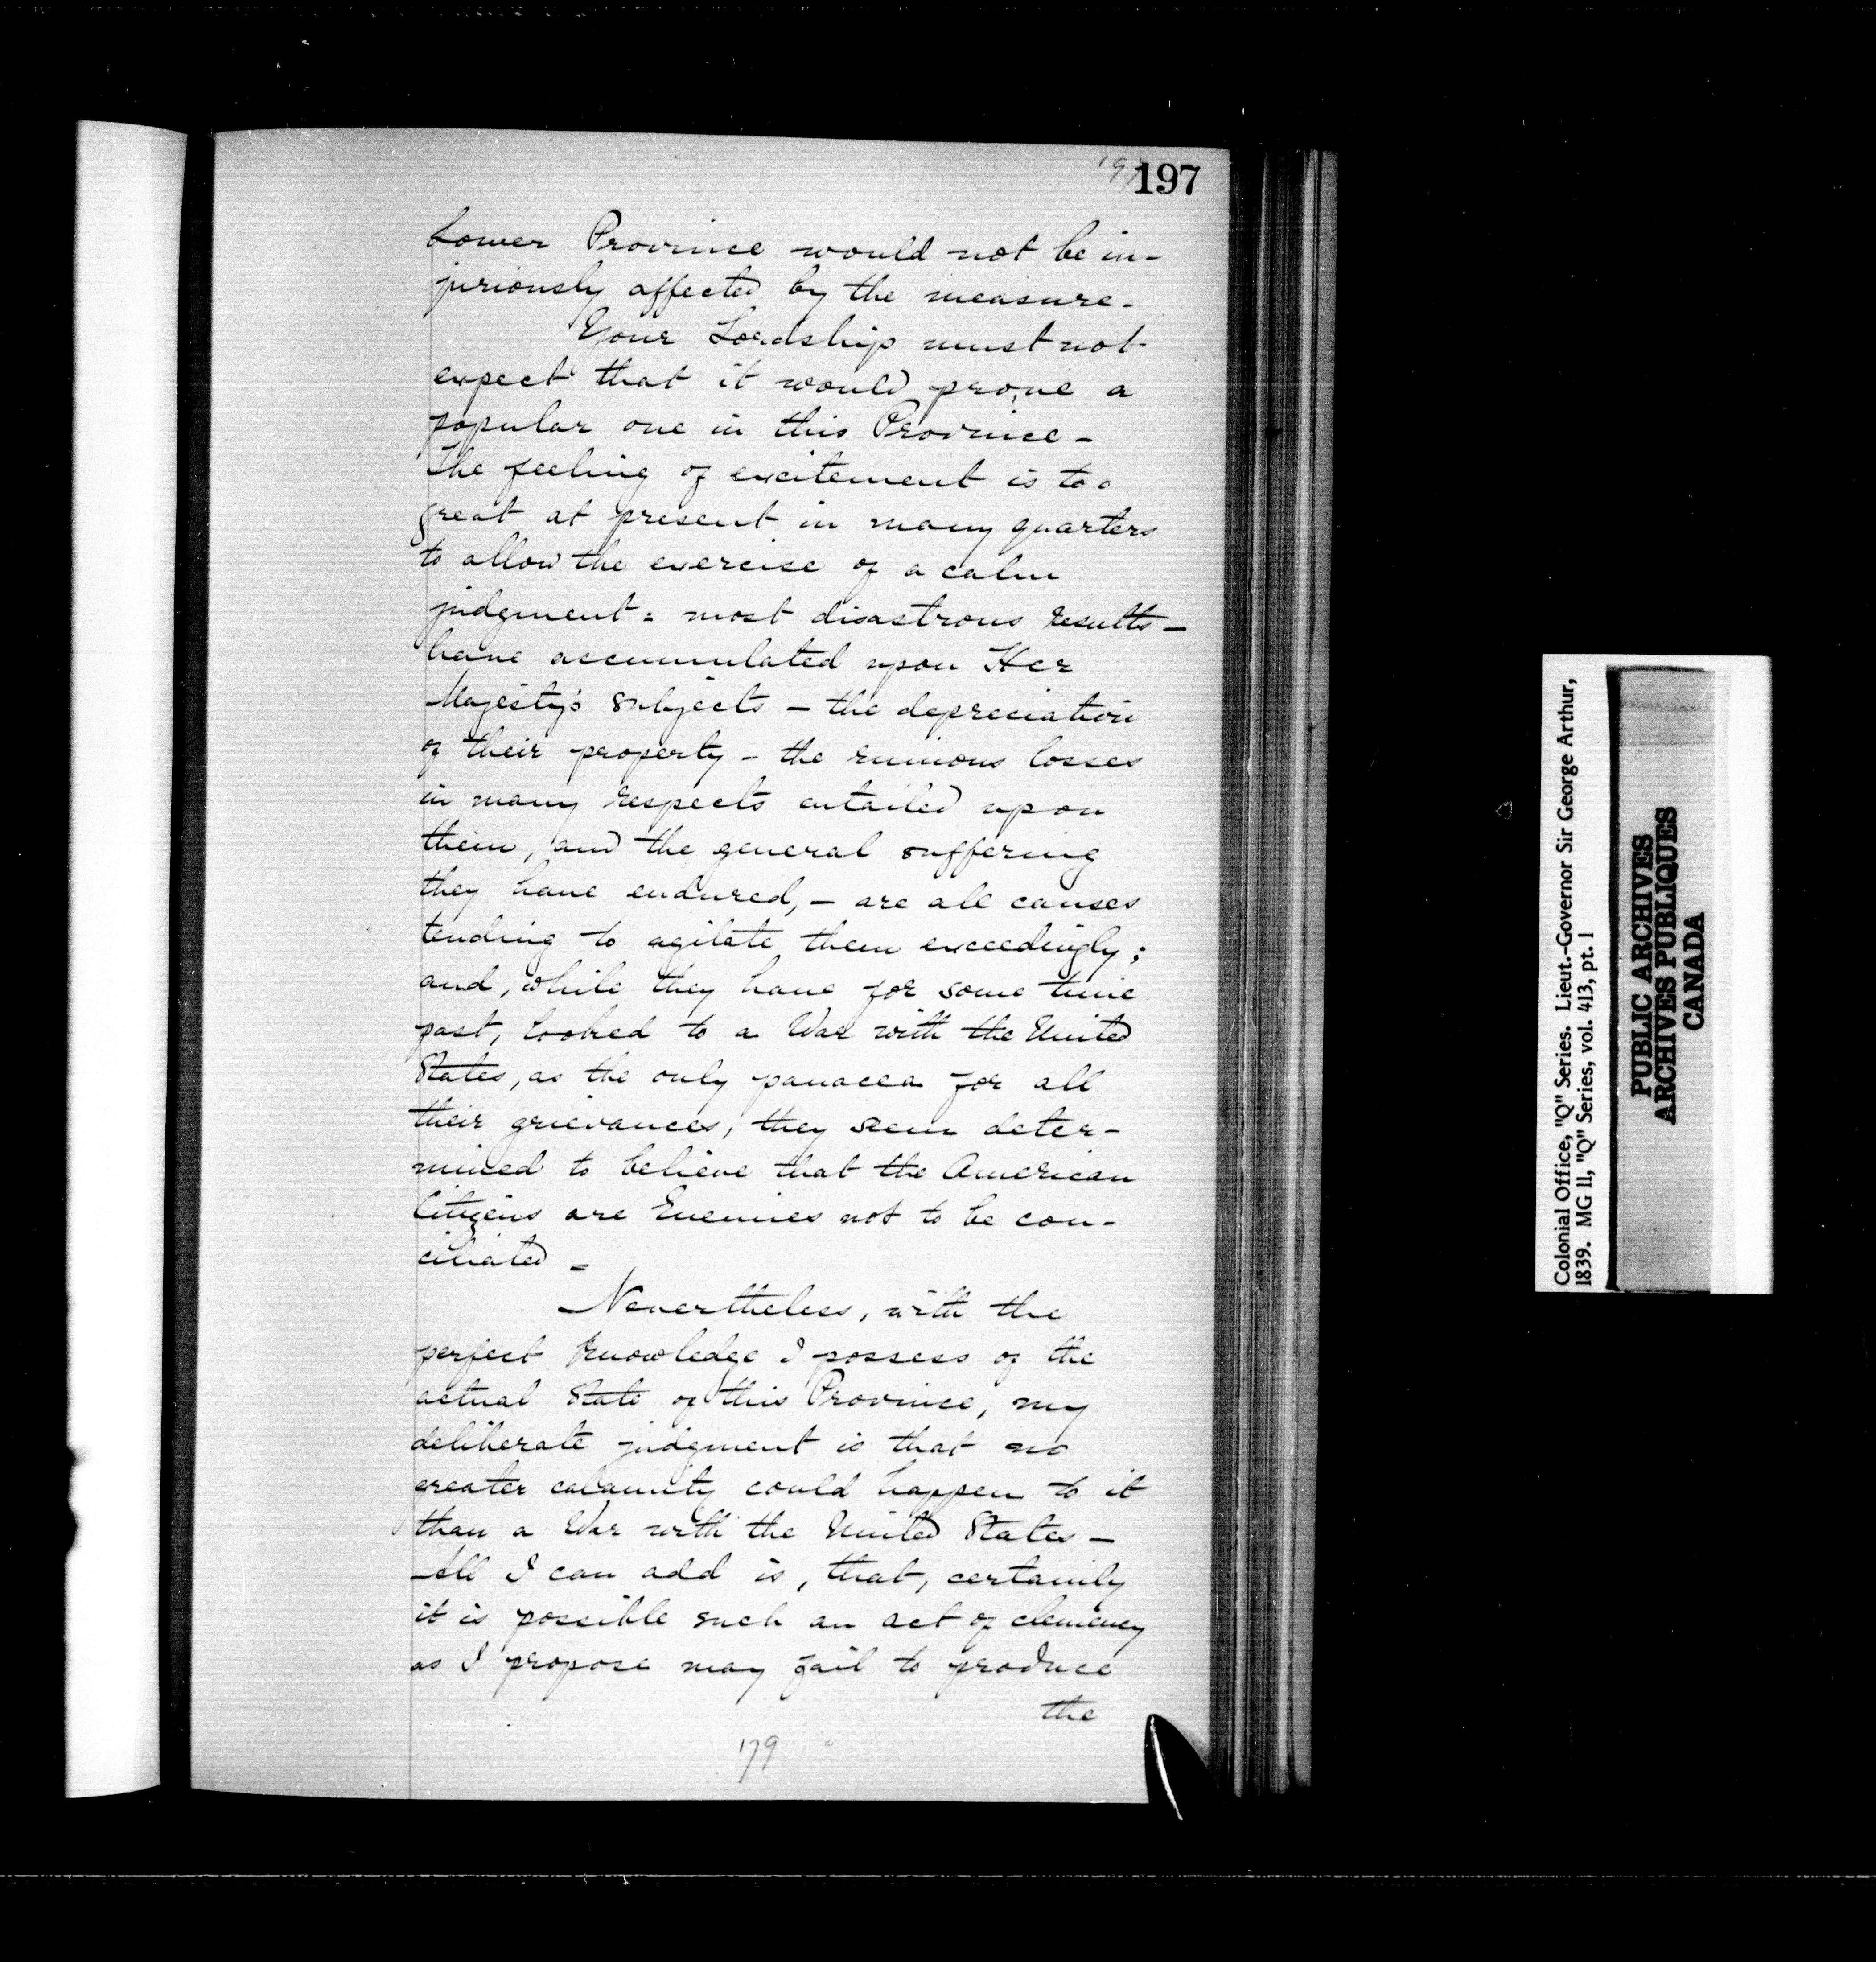 197
197
Lower Province would not be in-
juriously affected by the measure-
Your Lordship must not
expect that it would prove a
popular one in this Province-
The feeling of excitement is too
great at present in many quarters
to allow the exercise of a calm
judgment: most disastrous results-
have accumulated upon Her
Majesty's subjects - the depreciation
of their property - the ruinous losses
in many respects entailed upon
them, and the general suffering
they have endured, - are all causes
tending to agitate them exceedingly;
and, while they have for some time
past, looked to a War with the United
States, as the only panacea for all
their grievances, they seem deter-
mined to believe that the American
Citizens are Enemies not to be con-
ciliated -
Nevertheless, with the
perfect knowledge I possess of the
actual State of this Province, my
deliberate judgment is that no
greater calamity could happen to it
than a War with the United States-
All I can add is, that, certainly
it is possible such an act of clemency
as I propose may fail to produce
the
179
Colonial Office, "Q" Series. Lieut.-Governor Sir George Arthur,
1839. MG 11, "Q" Series, vol. 413, pt. 1
PUBLIC ARCHIVES
ARCHIVES PUBLIQUES
CANADA